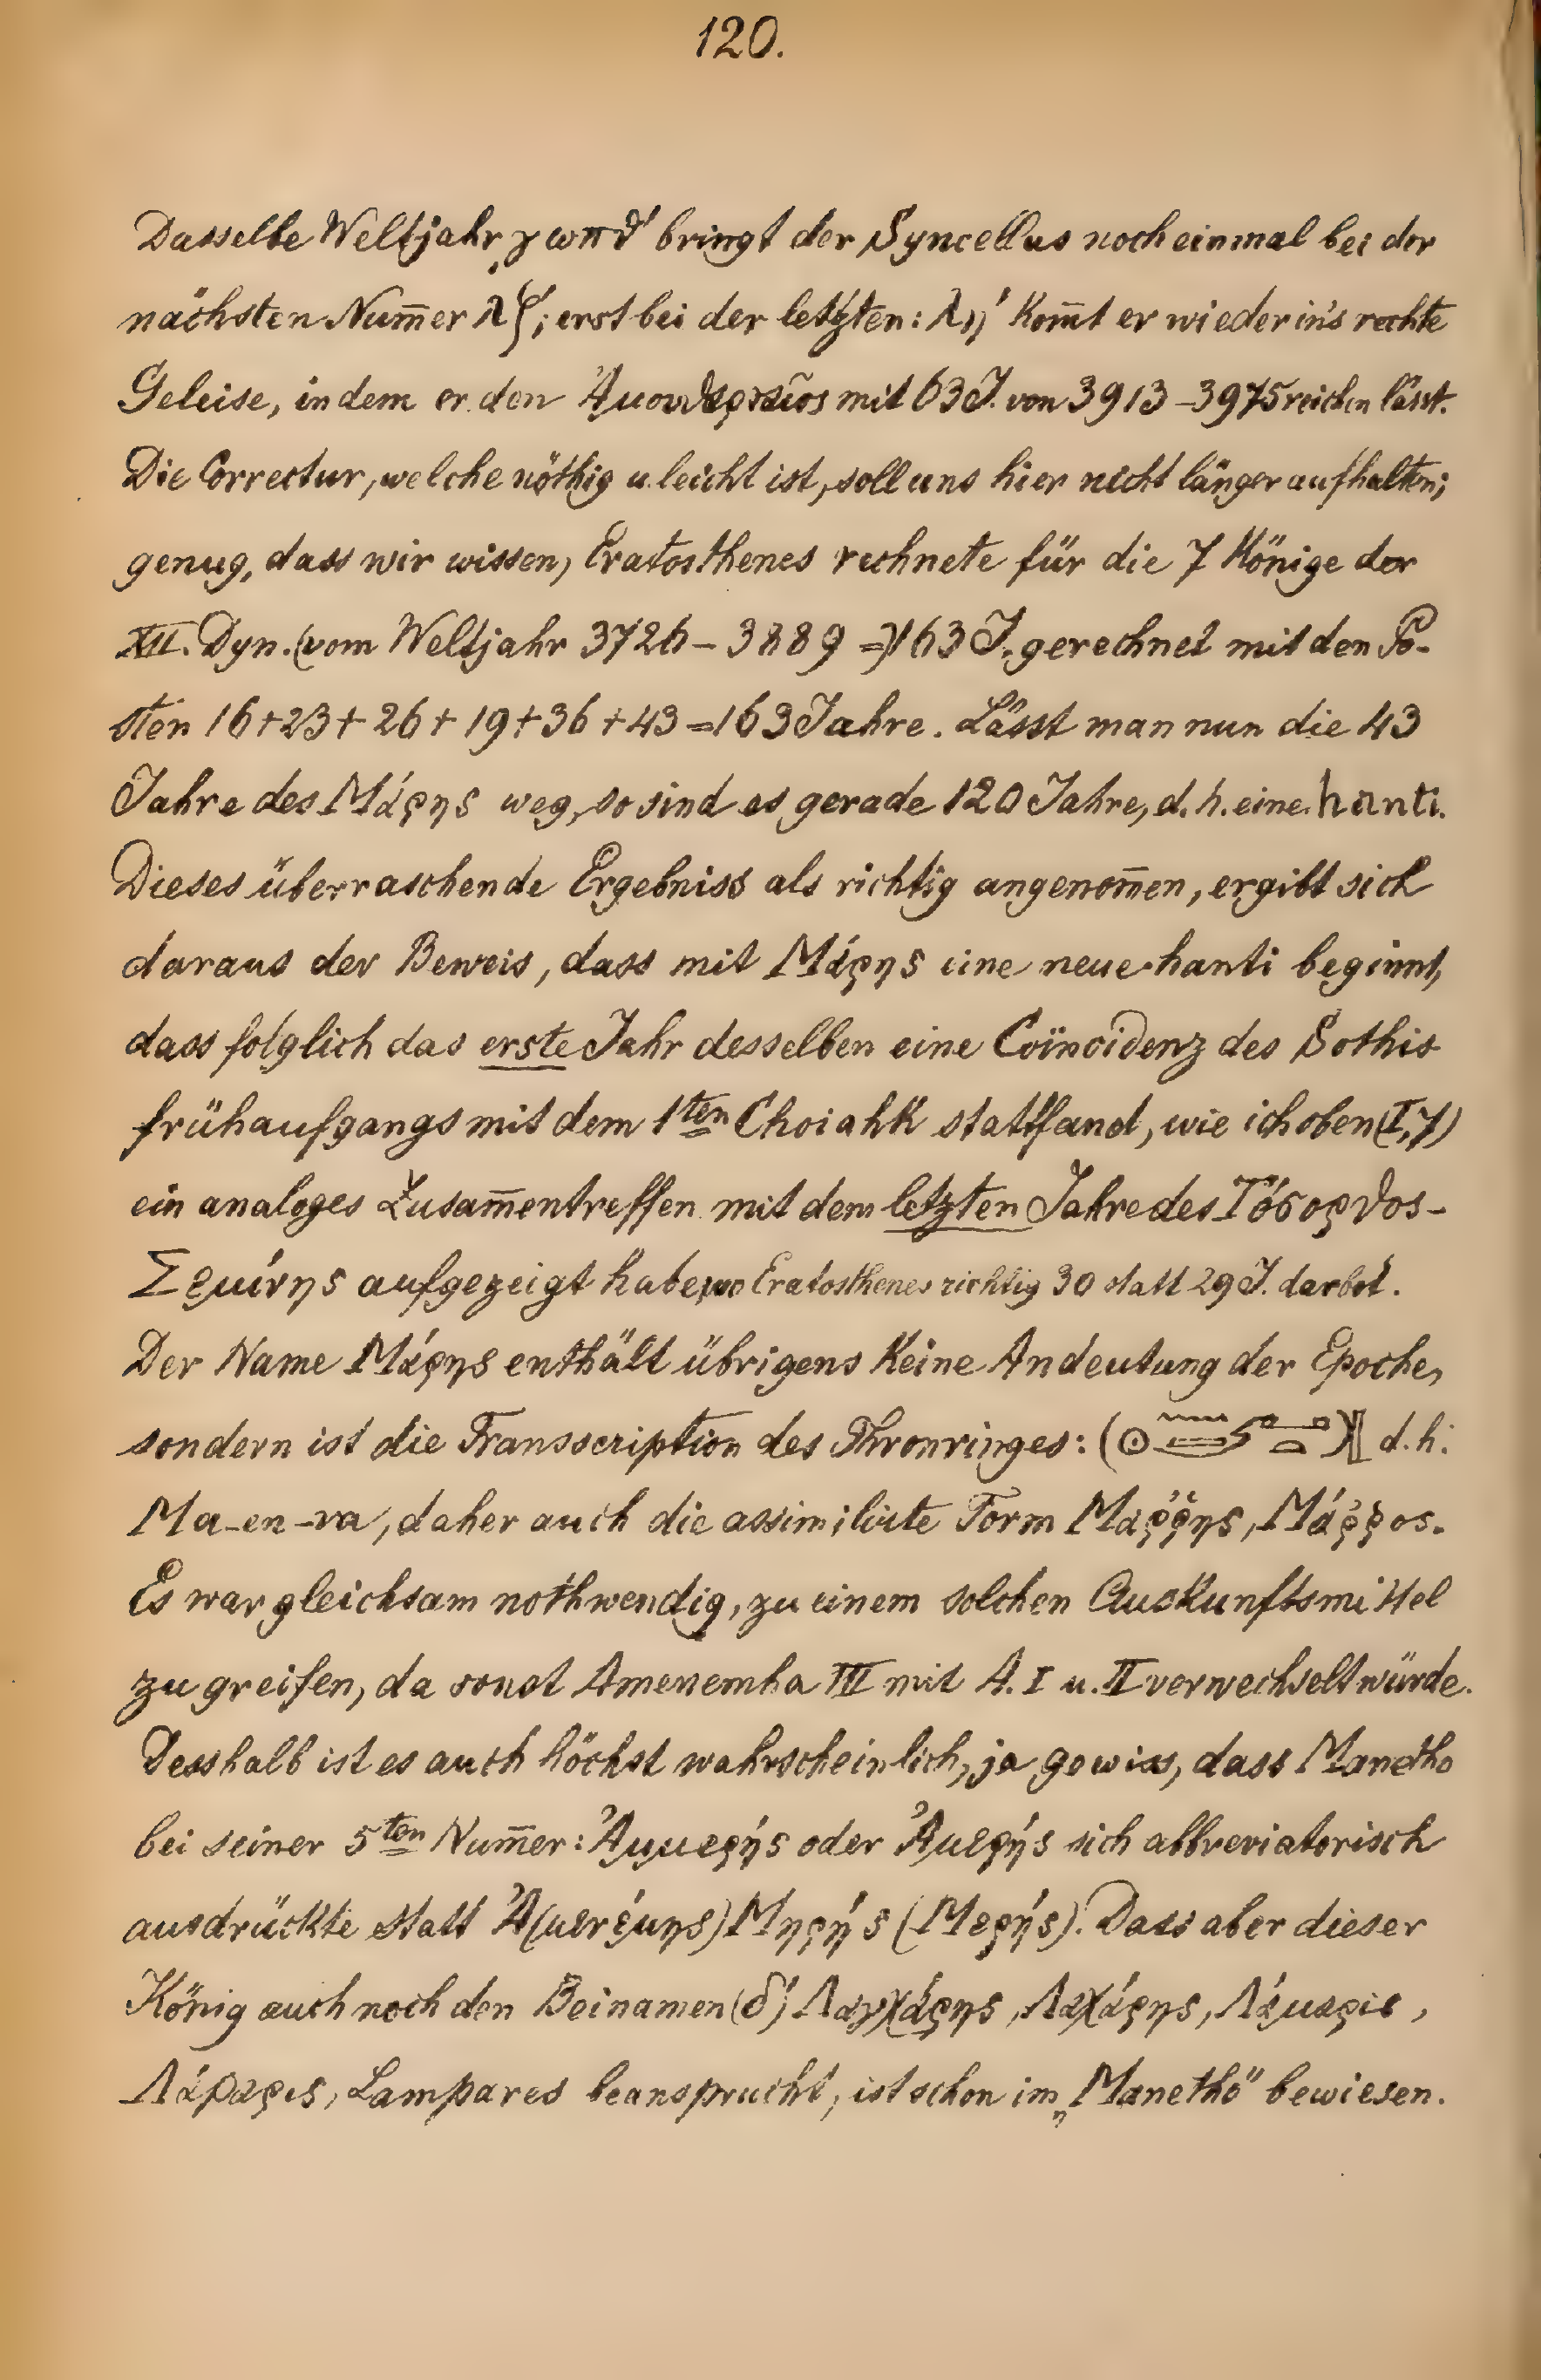 120.
Dasselbe Weltjahr ͵γωπθ' bringt der Syncellus noch einmal bei der
nächsten Num̄er λζ'; erst bei der letzten: λη' kom̄t er wieder in's rechte
Geleise, indem er den mit 63 J. von 3913–3975 reichen lässt.
Die Correctur, welche nöthig u. leicht ist, soll uns hier nicht länger aufhalten;
genug, dass wir wissen, Eratosthenes rechnete für die 7 Könige der
XII. Dyn. (vom Weltjahr 3726–3889 =) 163 J. gerechnet mit den Po-
sten 16+23+26+19+36+43=163 Jahre. Lässt man nun die 43
Jahre des Μάρης weg, so sind es gerade 120 Jahre, d. h. eine hanti.
Dieses überraschende Ergebniss als richtig angenom̄en, ergibt sich
daraus der Beweis, dass mit Μάρης eine neue hanti beginnt,
dass folglich das erste Jahr desselben eine Coïncidenz des Sothis
frühaufgangs mit dem 1ten Choiahk stattfand, wie ich oben (I, 7)
ein analoges Zusam̄entreffen mit dem letzten Jahre des Τόσορθος-
Σεμίνης aufgezeigt habe, wo Eratosthenes richtig 30 statt 29 J. darbot.
Der Name Μάρης enthält übrigens keine Andeutung der Epoche,
sondern ist die Transscription des Thronringes: ( ) d. h.
Ma-en-ra, daher auch die assimilirte Form Μαῤῥης, Μάῤῥος.
Es war gleichsam nothwendig, zu einem solchen Auskunftsmittel
zu greifen, da sonst Amenemha III mit A. I u. II verwechselt würde.
Desshalb ist es auch höchst wahrscheinlich, ja gewiss, dass Manetho
bei seiner 5ten Num̄er: Ἀμμερής oder Ἀμερής sich abbreviatorisch
ausdrückte statt Ἀ(μενέμης) Μηρής (Μερής). Dass aber dieser
König auch noch den Beinamen (δ') Λαγχάρης, Λαχάρης, Λάμαρις,
Λάβαρις, Lampares beansprucht, ist schon im „Manetho" bewiesen.